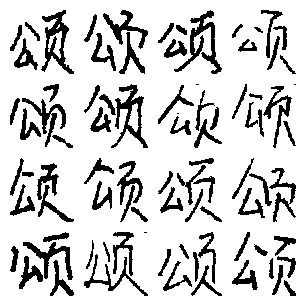 颂颂颂颂
颂颂颂颂
颂颂颂颂
颂颂颂颂